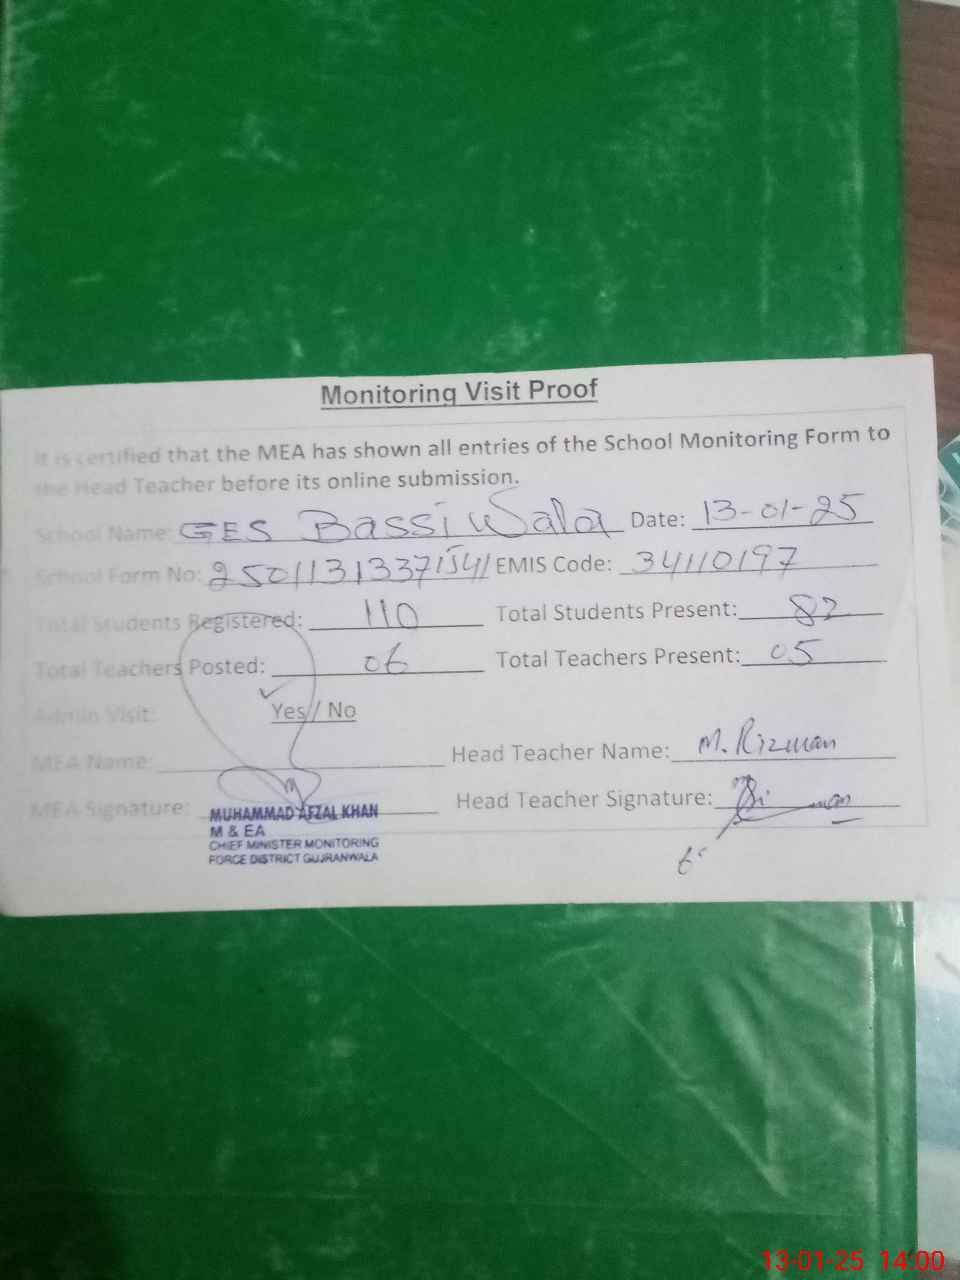 Monitoring Visit Proof
It is certified that the MEA has shown all entries of the School Monitoring Form to
the Head Teacher before its online submission.
School Name: GES Bassi Wala Date: 13-01-25
School Form No: EMIS Code: 34110197
Total Students Registered: 110 Total Students Present: 82
Total Teachers Posted: 06 Total Teachers Present: 05
Admin Visit: Yes / No
MEA Name: Head Teacher Name: M. Rizwan
MEA Signature: Head Teacher Signature:
MUHAMMAD AFZAL KHAN
M & EA
CHIEF MINISTER MONITORING
FORCE DISTRICT GUJRANWALA
13-01-25 14:00